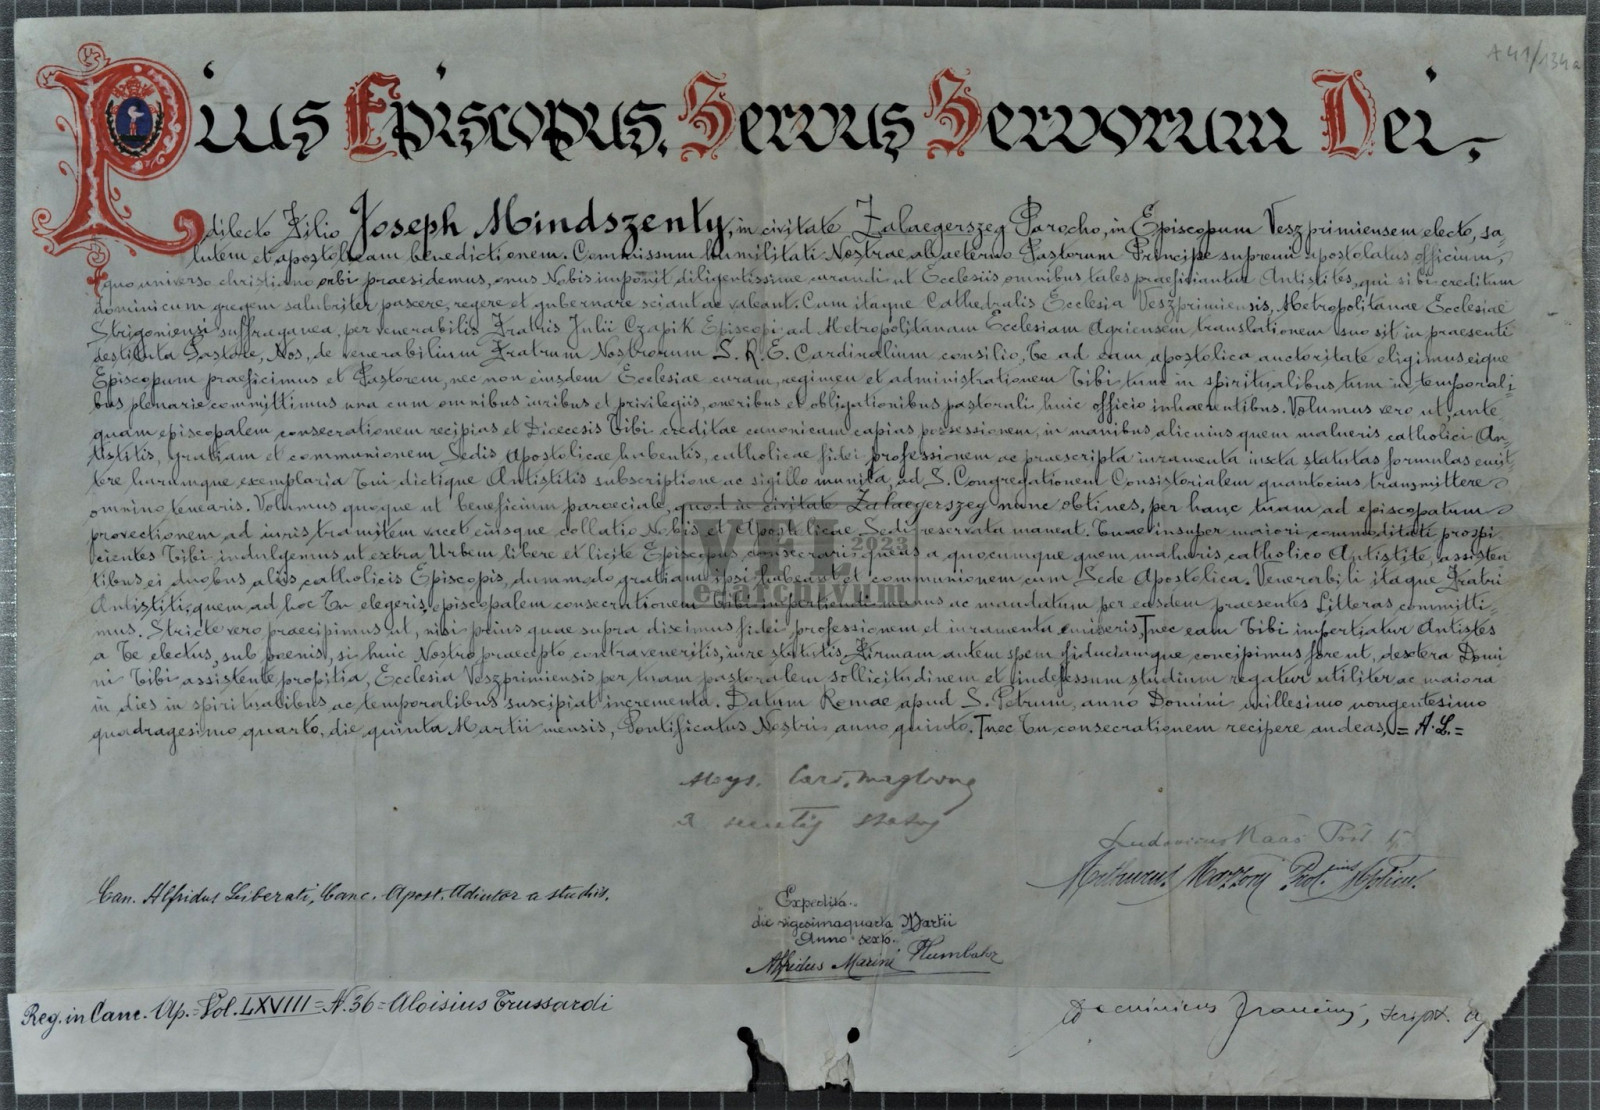 A 41/134a
Pius Episcopus, Servus Servorum Dei,
dilecto Filio Joseph Mindszenty, in civitate Zalaegerszeg Parocho, in Episcopum Veszprimiensem electo, sa-
lutem et apostolicam benedictionem. Commissum humilitati Nostrae ab aeterno Pastorum Principe supremi apostolatus officium,
quo universo christiano orbi praesidemus, onus Nobis imponit diligentissime curandi ut Ecclesiis omnibus tales praeficiantur Antistites, qui sibi creditum
dominicum gregem salubriter pascere, regere et gubernare sciant ac valeant. Cum itaque Cathedralis Ecclesia Veszprimiensis, Metropolitanae Ecclesiae
Strigoniensi suffraganea, per venerabilis Fratris Julii Czapik Episcopi ad Metropolitanam Ecclesiam Agriensem translationem suo sit in praesenti
destituta Pastore, Nos, de venerabilium Fratrum Nostrorum S. R. E. Cardinalium consilio, Te ad eam apostolica auctoritate eligimus eique
Episcopum praeficimus et Pastorem, nec non eiusdem Ecclesiae curam, regimen et administrationem Tibi tum in spiritualibus tum in temporali-
bus plenarie committimus una cum omnibus iuribus et privilegiis, oneribus et obligationibus pastorali huic officio inhaerentibus. Volumus vero ut, ante-
quam episcopalem consecrationem recipias et Dioecesis Tibi creditae canonicam capias possessionem, in manibus alicuius quem malueris catholici An-
tistitis, gratiam et communionem Sedis Apostolicae habentis, catholicae fidei professionem ac praescripta iuramenta iuxta statutas formulas emit-
tere harumque exemplaria Tui dictique Antistitis subscriptione ac sigillo munita, ad S. Congregationem Consistorialem quantocius transmittere
omnino tenearis. Volumus quoque ut beneficium paroeciale, quod in civitate Zalaegerszeg nunc obtines, per hanc tuam ad episcopatum
provectionem ad iuris tramitem vacet eiusque collatio Nobis et Apostolicae Sedi reservata maneat. Tuae insuper maiori commoditati prospi-
cientes Tibi indulgemus ut extra Urbem libere et licite Episcopus consecrari queas a quocumque quem malueris catholico Antistite, assisten-
tibus ei duobus aliis catholicis Episcopis, dummodo gratiam ipsi habeant et communionem cum Sede Apostolica. Venerabili itaque Fratri
Antistiti, quem ad hoc Tu elegeris, episcopalem consecrationem Tibi impertiendi munus ac mandatum per easdem praesentes Litteras committi-
mus. Stricte vero praecipimus ut, nisi prius quae supra diximus fidei professionem et iuramenta emiseris, Tnec eam Tibi impertiatur Antistes
a Te electus, sub poenis, si huic Nostro praecepto contraveneritis, iure statutis. Firmam autem spem fiduciamque concipimus fore ut, dextera Domi-
ni Tibi assistente propitia, Ecclesia Veszprimiensis per tuam pastoralem sollicitudinem et indefessum studium regatur utiliter ac maiora
in dies in spiritualibus ac temporalibus suscipiat incrementa. Datum Romae apud S. Petrum, anno Domini millesimo nongentesimo
quadragesimo quarto, die quinta Martii mensis, Pontificatus Nostri anno quinto. Tnec Tu consecrationem recipere audeas, = A. L. =
VFL 2023
e-archivum
Aloys. Card. Maglione
a secretis status
Ludovicus Kaas Prot.
Can. Alfridus Liberati, Canc. Apost. Adiutor a studiis.
Expedita
die vigesimaquarta Martii
Anno sexto.
Alfridus Marini Plumbator
Reg. in Canc. Ap. Vol. LXVIII = N. 36 = Aloisius Trussardi
Dominicus Francini, script. Ap